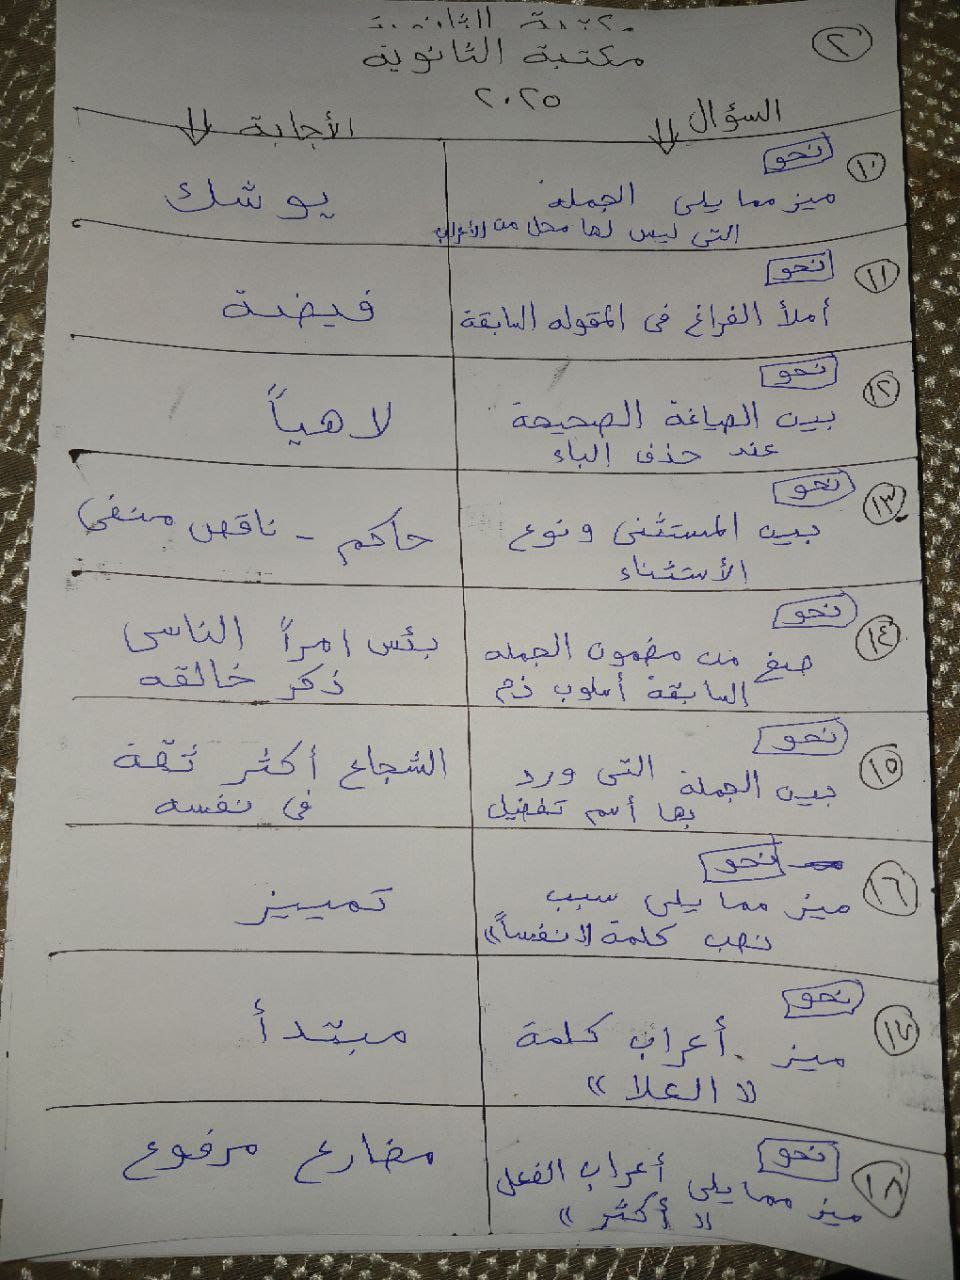 مكتبة الثانوية
٢
مكتبة الثانوية
٢٠٢٥
السؤال
الأجابة
١٠
نحو
ميز مما يلى الجملة
التى ليس لها محل من الأعراب
يوشك
١١
نحو
أملأ الفراغ فى المقوله السابقة
فيضة
١٢
نحو
بين الصياغة الصحيحة
عند حذف الباء
لاهياً
١٣
نحو
بين المستثنى ونوع
الأستثناء
حاكم - ناقص منفى
١٤
نحو
صغ من مضمون الجمله
السابقة أسلوب ذم
بئس امرأً الناسى
ذكر خالقه
١٥
نحو
بين الجملة التى ورد
بها أسم تفضيل
الشجاع أكثر ثقة
فى نفسه
١٦
نحو
ميز مما يلى سبب
نصب كلمة "نفساً"
تمييز
١٧
نحو
ميز أعراب كلمة
"العلا"
مبتدأ
١٨
نحو
ميز مما يلى أعراب الفعل
"أكثر"
مضارع مرفوع